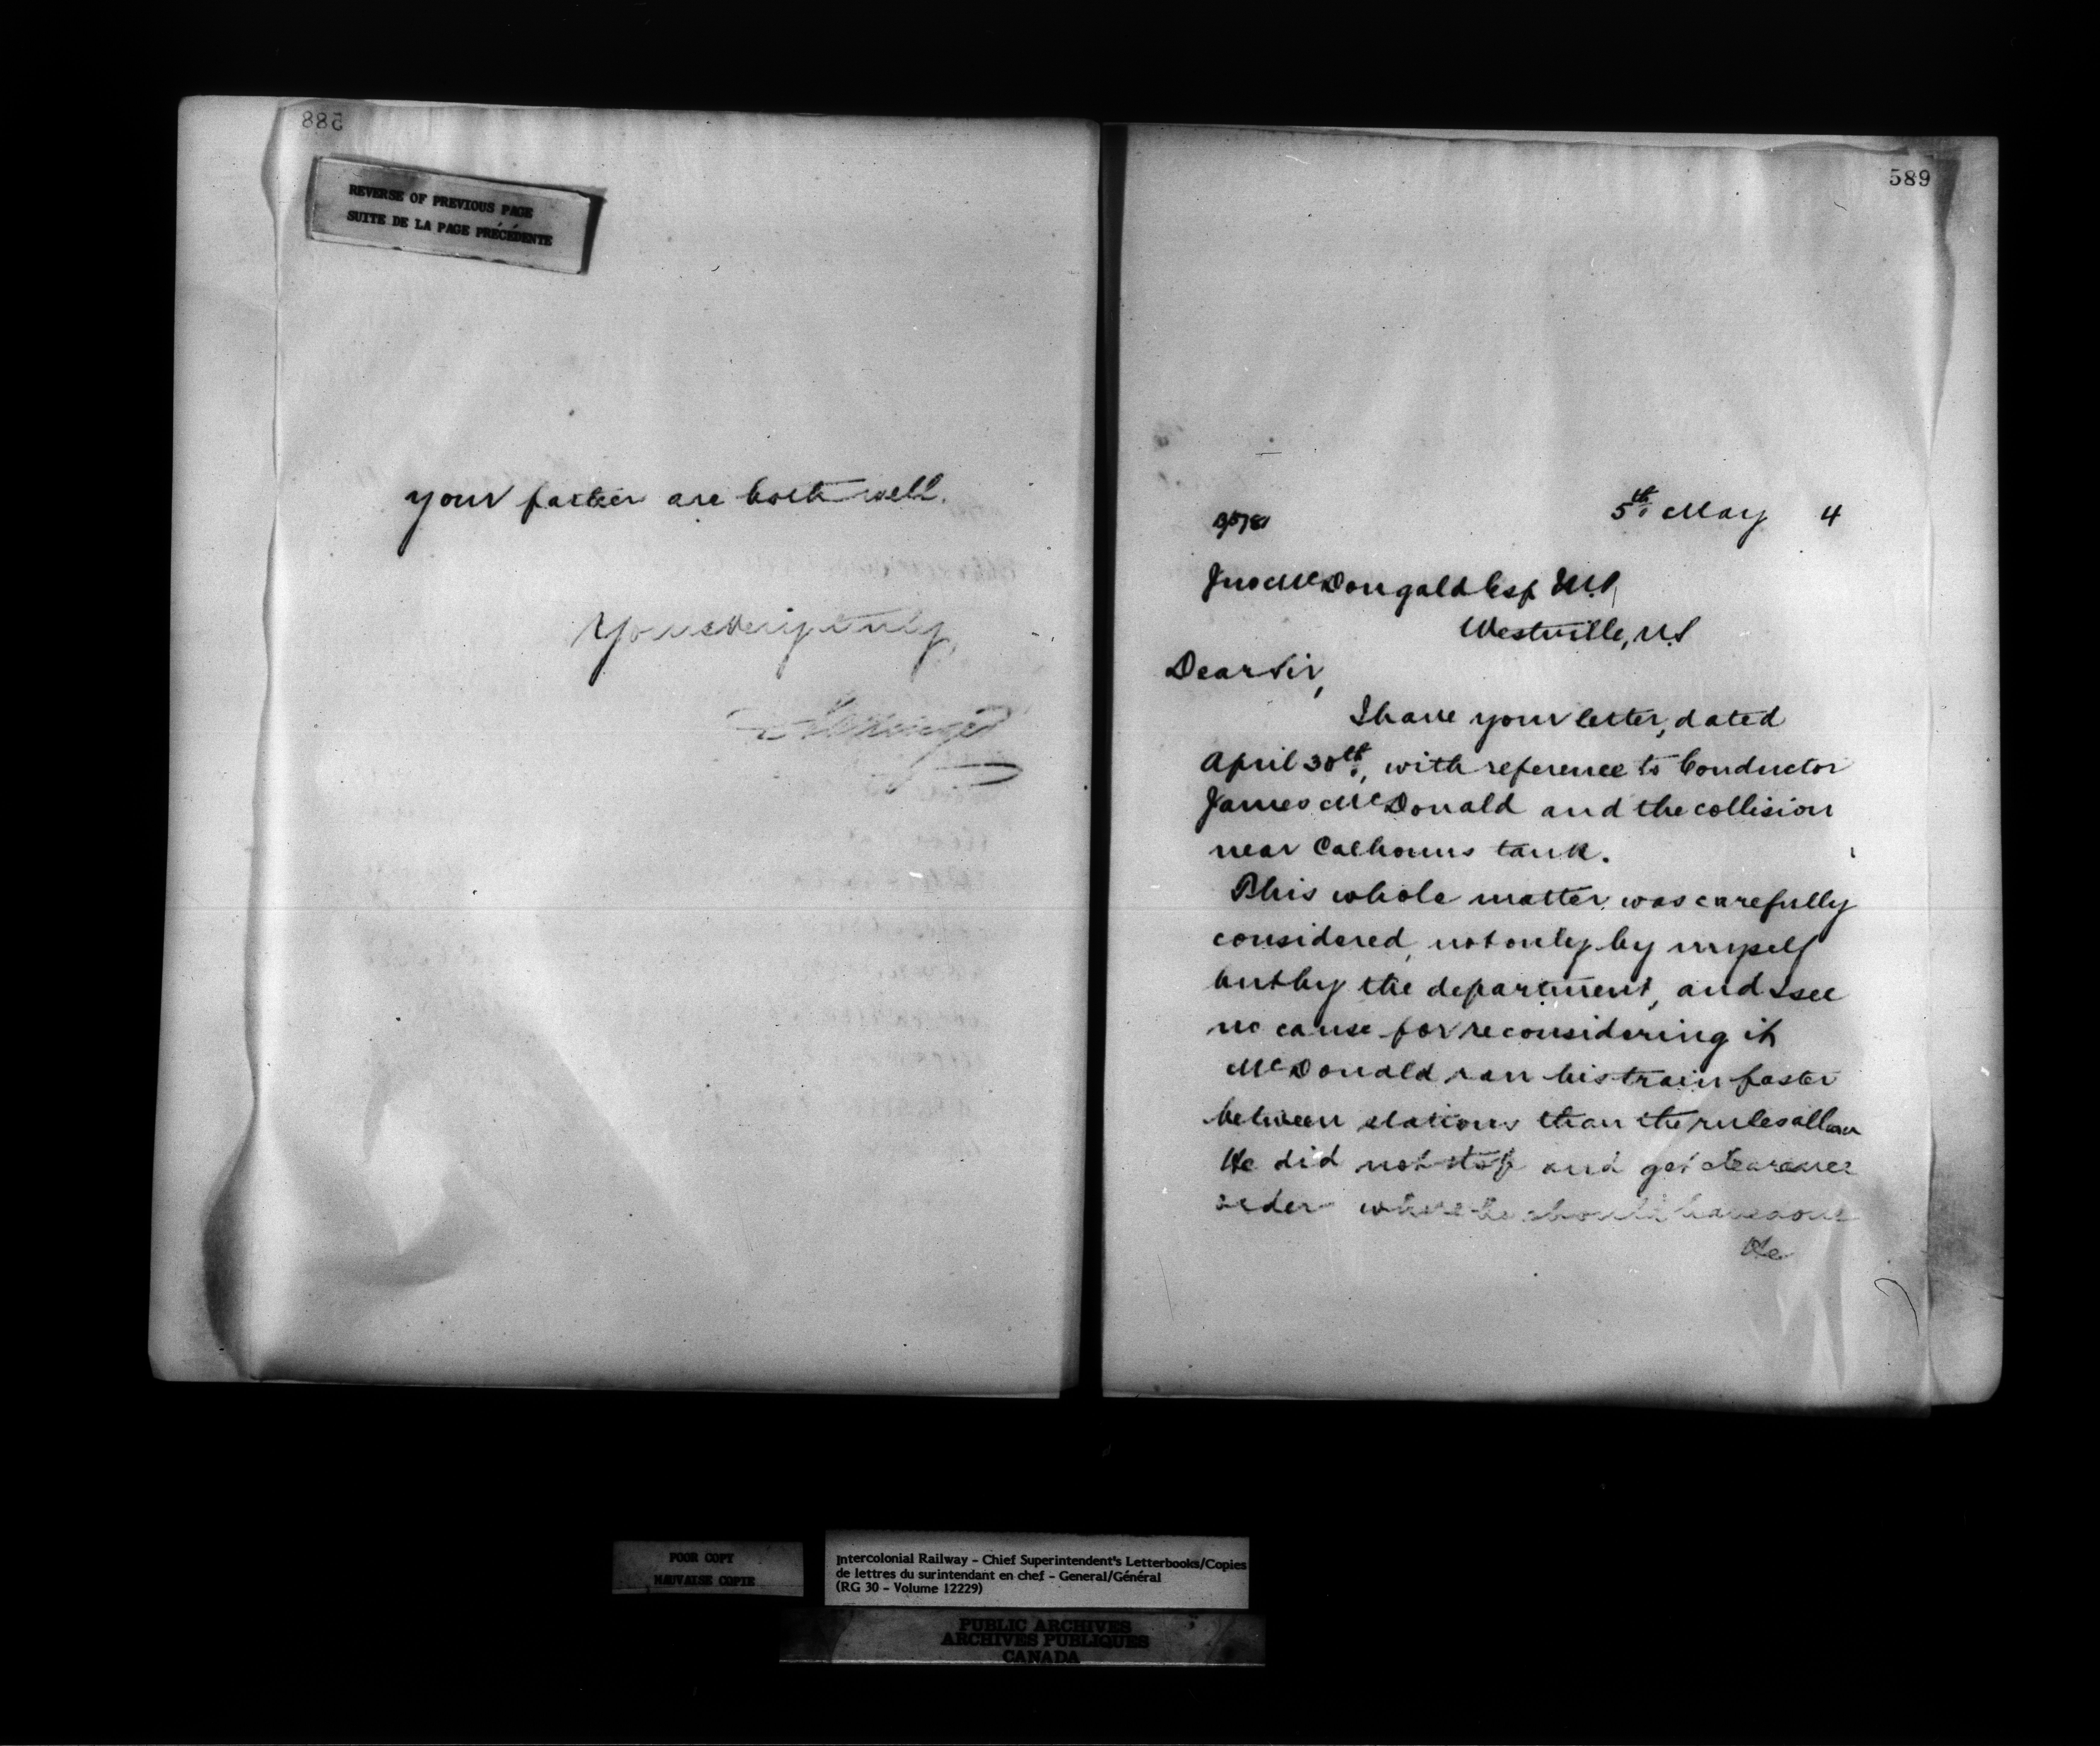 588
REVERSE OF PREVIOUS PAGE
SUITE DE LA PAGE PRÉCÉDENTE
your father are both well.
Yours very truly,
589
5th May 4
Jno McDougald Esq M.P,
Westville, N.S
Dear Sir,
I have your letter, dated
April 30th, with reference to Conductor
James McDonald and the collision
near Calhouns tank.
This whole matter was carefully
considered, not only by myself
but by the department, and I see
no cause for reconsidering it
McDonald ran his train faster
between stations than the rules allow
He did not stop and get clearance
order where he should have done
He
POOR COPY
MAUVAISE COPIE
Intercolonial Railway - Chief Superintendent's Letterbooks/Copies
de lettres du surintendant en chef - General/Général
(RG 30 - Volume 12229)
PUBLIC ARCHIVES
ARCHIVES PUBLIQUES
CANADA